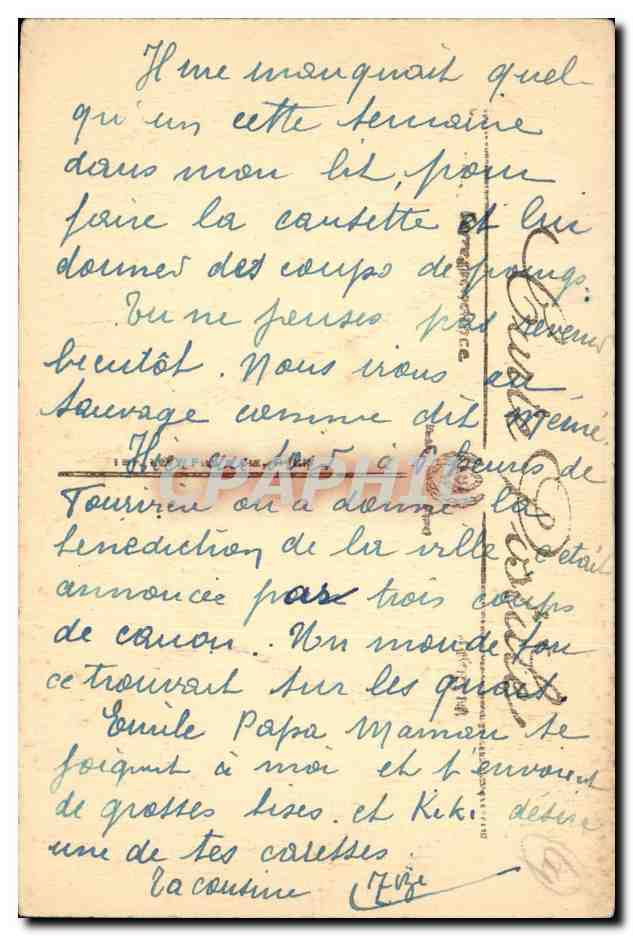 Il me manquait quel-
qu'un cette semaine
dans mon lit, pour
faire la causette et lui
donner des coups de poings.
Tu ne penses pas revenir
bientôt. Nous irons au
sauvage comme dit mémé.
Hier au soir à heures de
on a donné la
bénédiction de la ville c'était
annoncée par trois coups
de canon. Un monde fou
ce trouvait sur les quais.
Emile Papa Maman se
joignent à moi et t'envoient
de grosses bises. et Kiki désire
une de tes caresses.
Ta cousine
Correspondance
Carte Postale
CPAPHIL